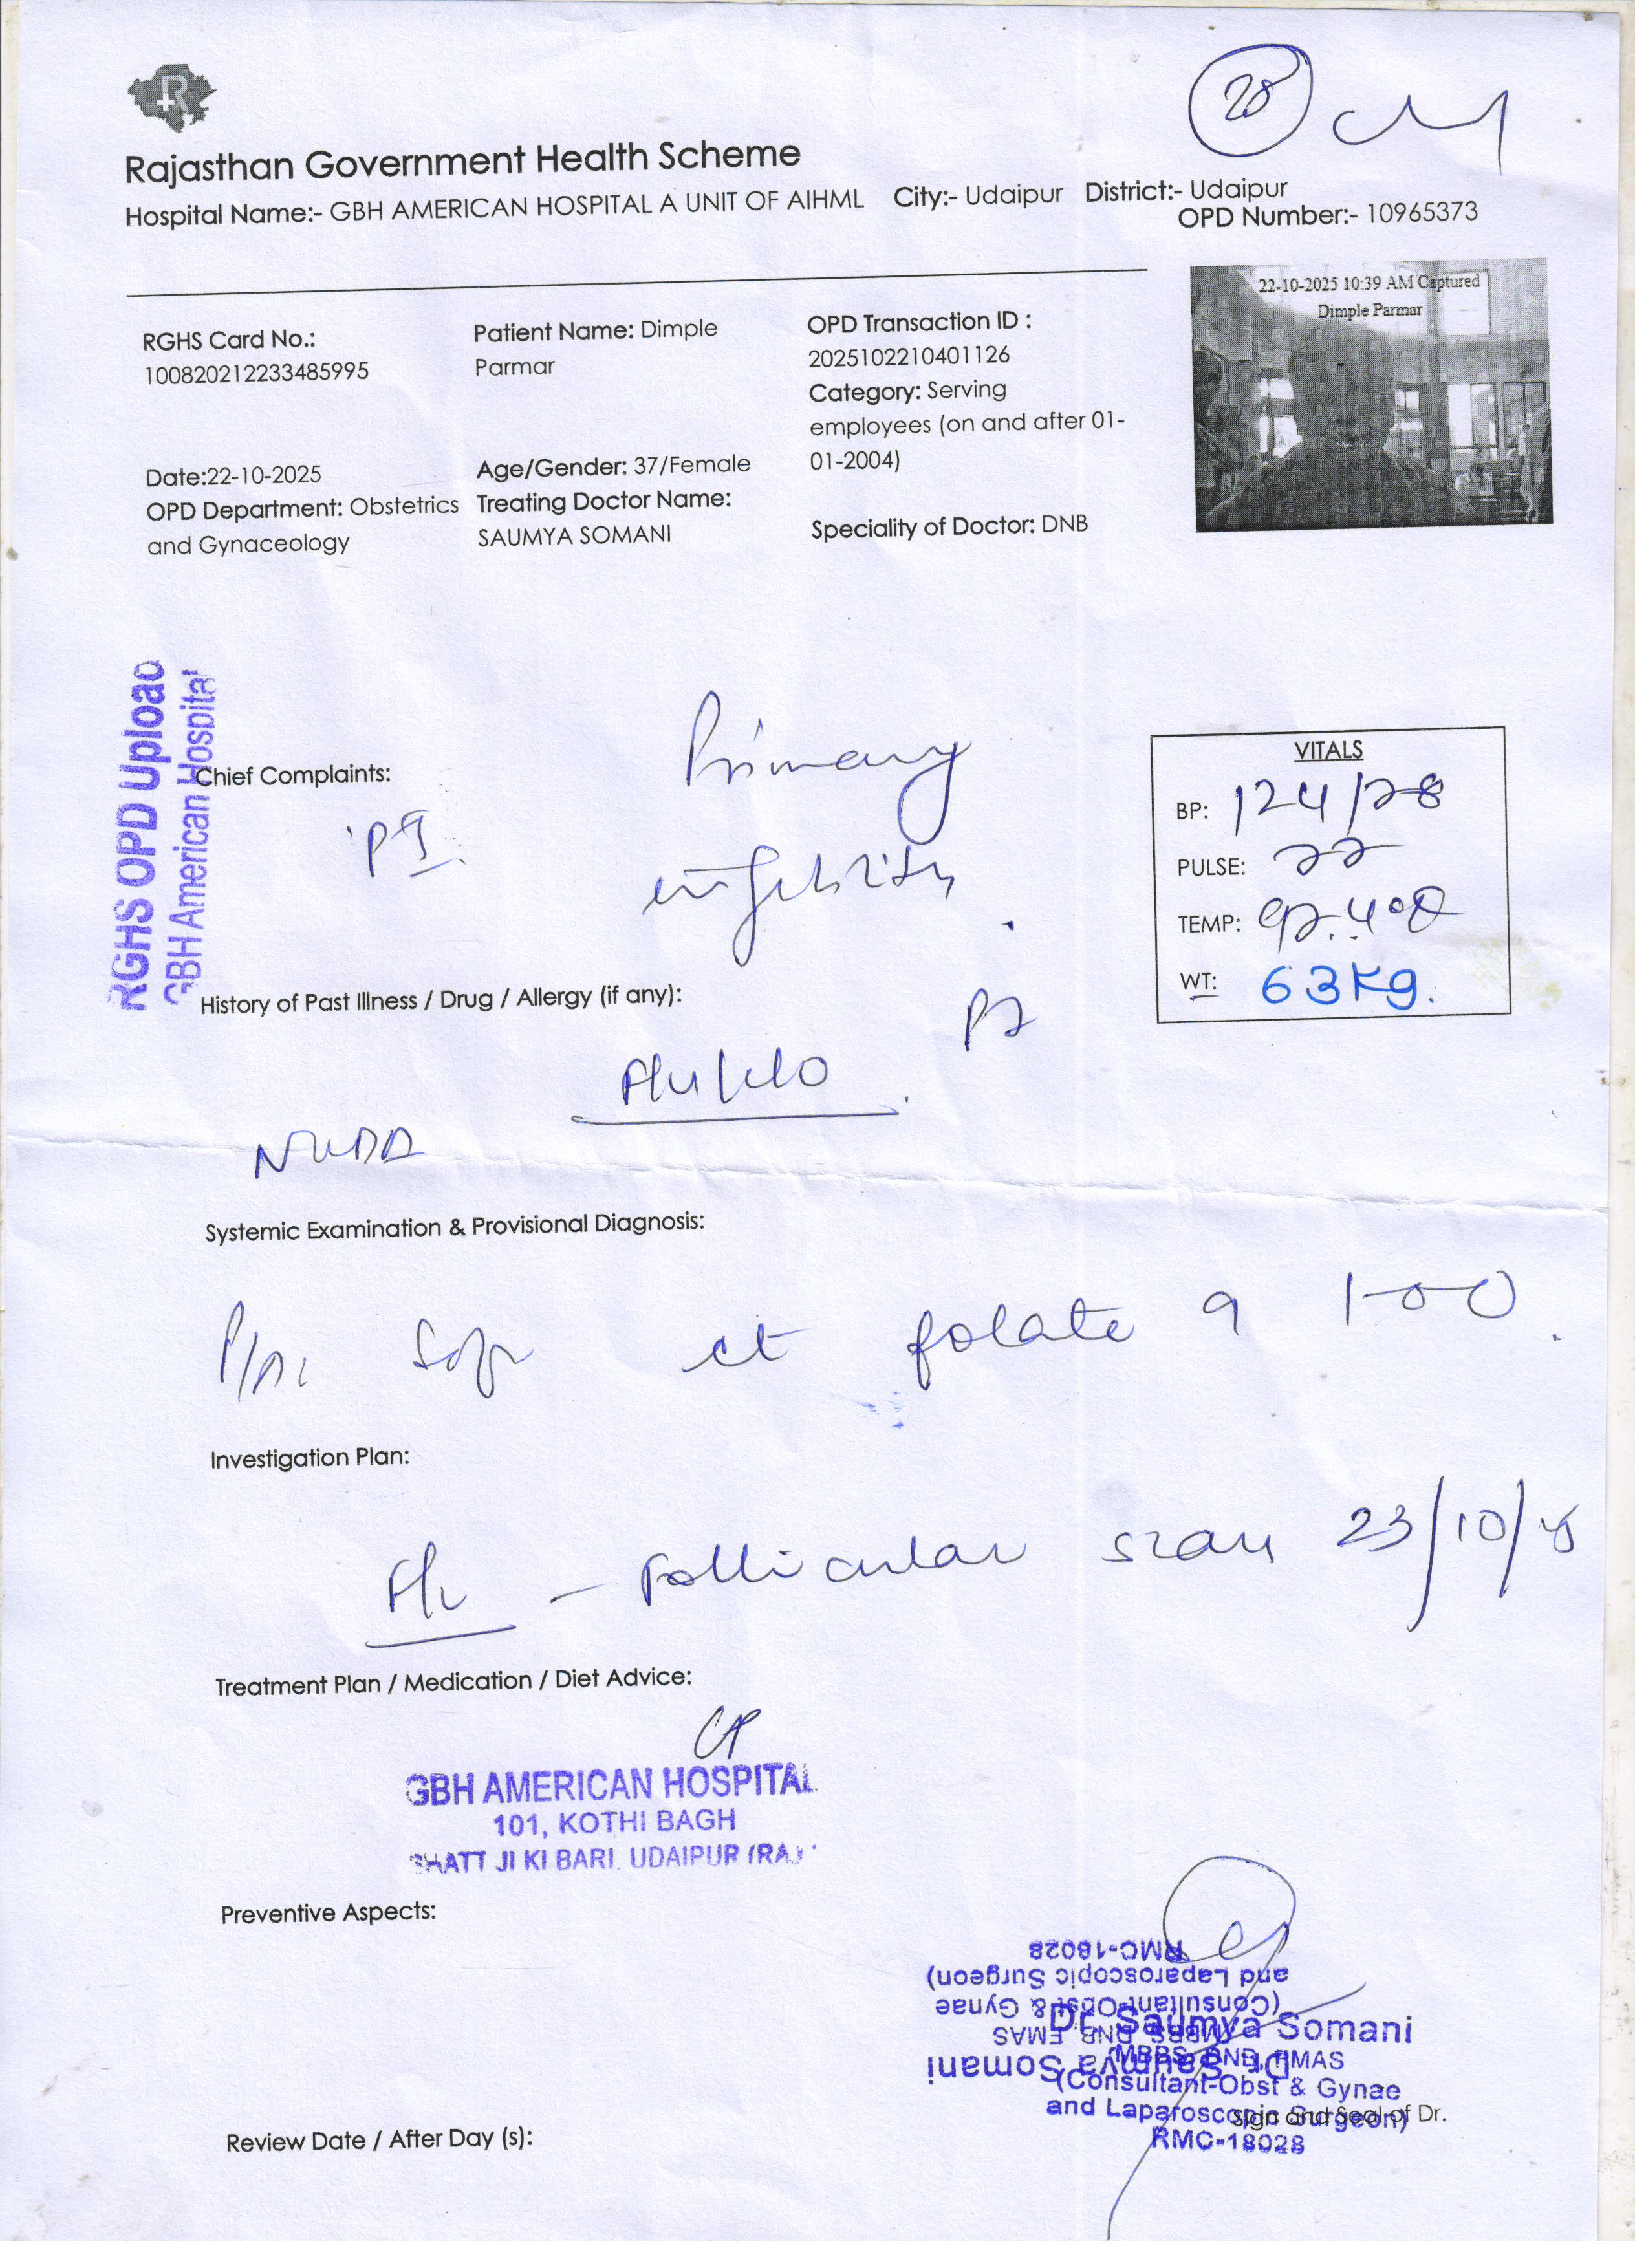 28
Rajasthan Government Health Scheme
Hospital Name:- GBH AMERICAN HOSPITAL A UNIT OF AIHML City:- Udaipur District:- Udaipur
OPD Number:- 10965373
22-10-2025 10:39 AM Captured
Dimple Parmar
RGHS Card No.:
100820212233485995
Patient Name: Dimple
Parmar
OPD Transaction ID :
2025102210401126
Category: Serving
employees (on and after 01-
01-2004)
Date:22-10-2025
Age/Gender: 37/Female
OPD Department: Obstetrics
and Gynaceology
Treating Doctor Name:
SAUMYA SOMANI
Speciality of Doctor: DNB
RGHS OPD Upload
GBH American Hospital
Chief Complaints:
Primary
infertility
VITALS
BP: 124/78
PULSE: 77
TEMP:
WT: 63Kg.
History of Past Illness / Drug / Allergy (if any):
NKDA
Systemic Examination & Provisional Diagnosis:
folate 1-0-0
Investigation Plan:
- Follicular scan 23/10/25
Treatment Plan / Medication / Diet Advice:
GBH AMERICAN HOSPITAL
101, KOTHI BAGH
BHATT JI KI BARI, UDAIPUR (RAJ
Preventive Aspects:
Dr. Saumya Somani
MBBS, DNB, FMAS
(Consultant-Obst & Gynae
and Laparoscopic Surgeon)
RMC-18028
Dr. Saumya Somani
(MBBS, DNB, FMAS
(Consultant-Obst & Gynae
and Laparoscopic Surgeon)
Sign and Seal of Dr.
RMC-18028
Review Date / After Day (s):